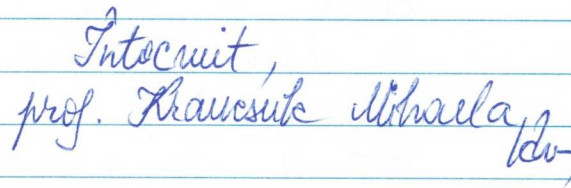 Întocmit,
prof. Krancsuk Mihaela